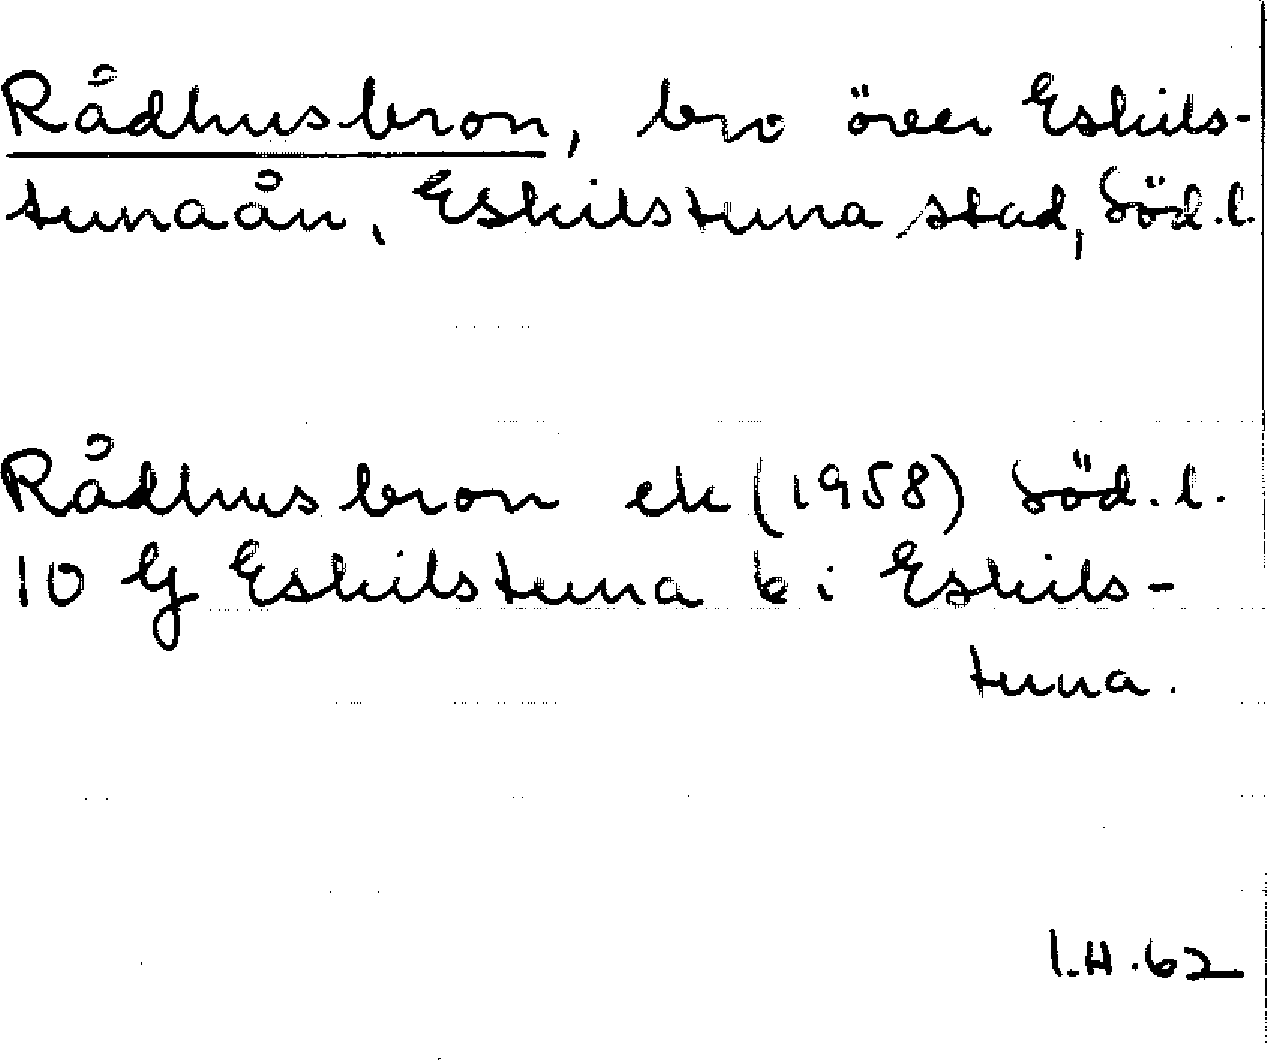 Rådhusbron, bro över Eskils-
tunaån, Eskilstuna stad, Söd.l.
Rådhusbron ek (1958) Söd.l.
10 G Eskilstuna b i Eskils-
tuna.
I.H.62